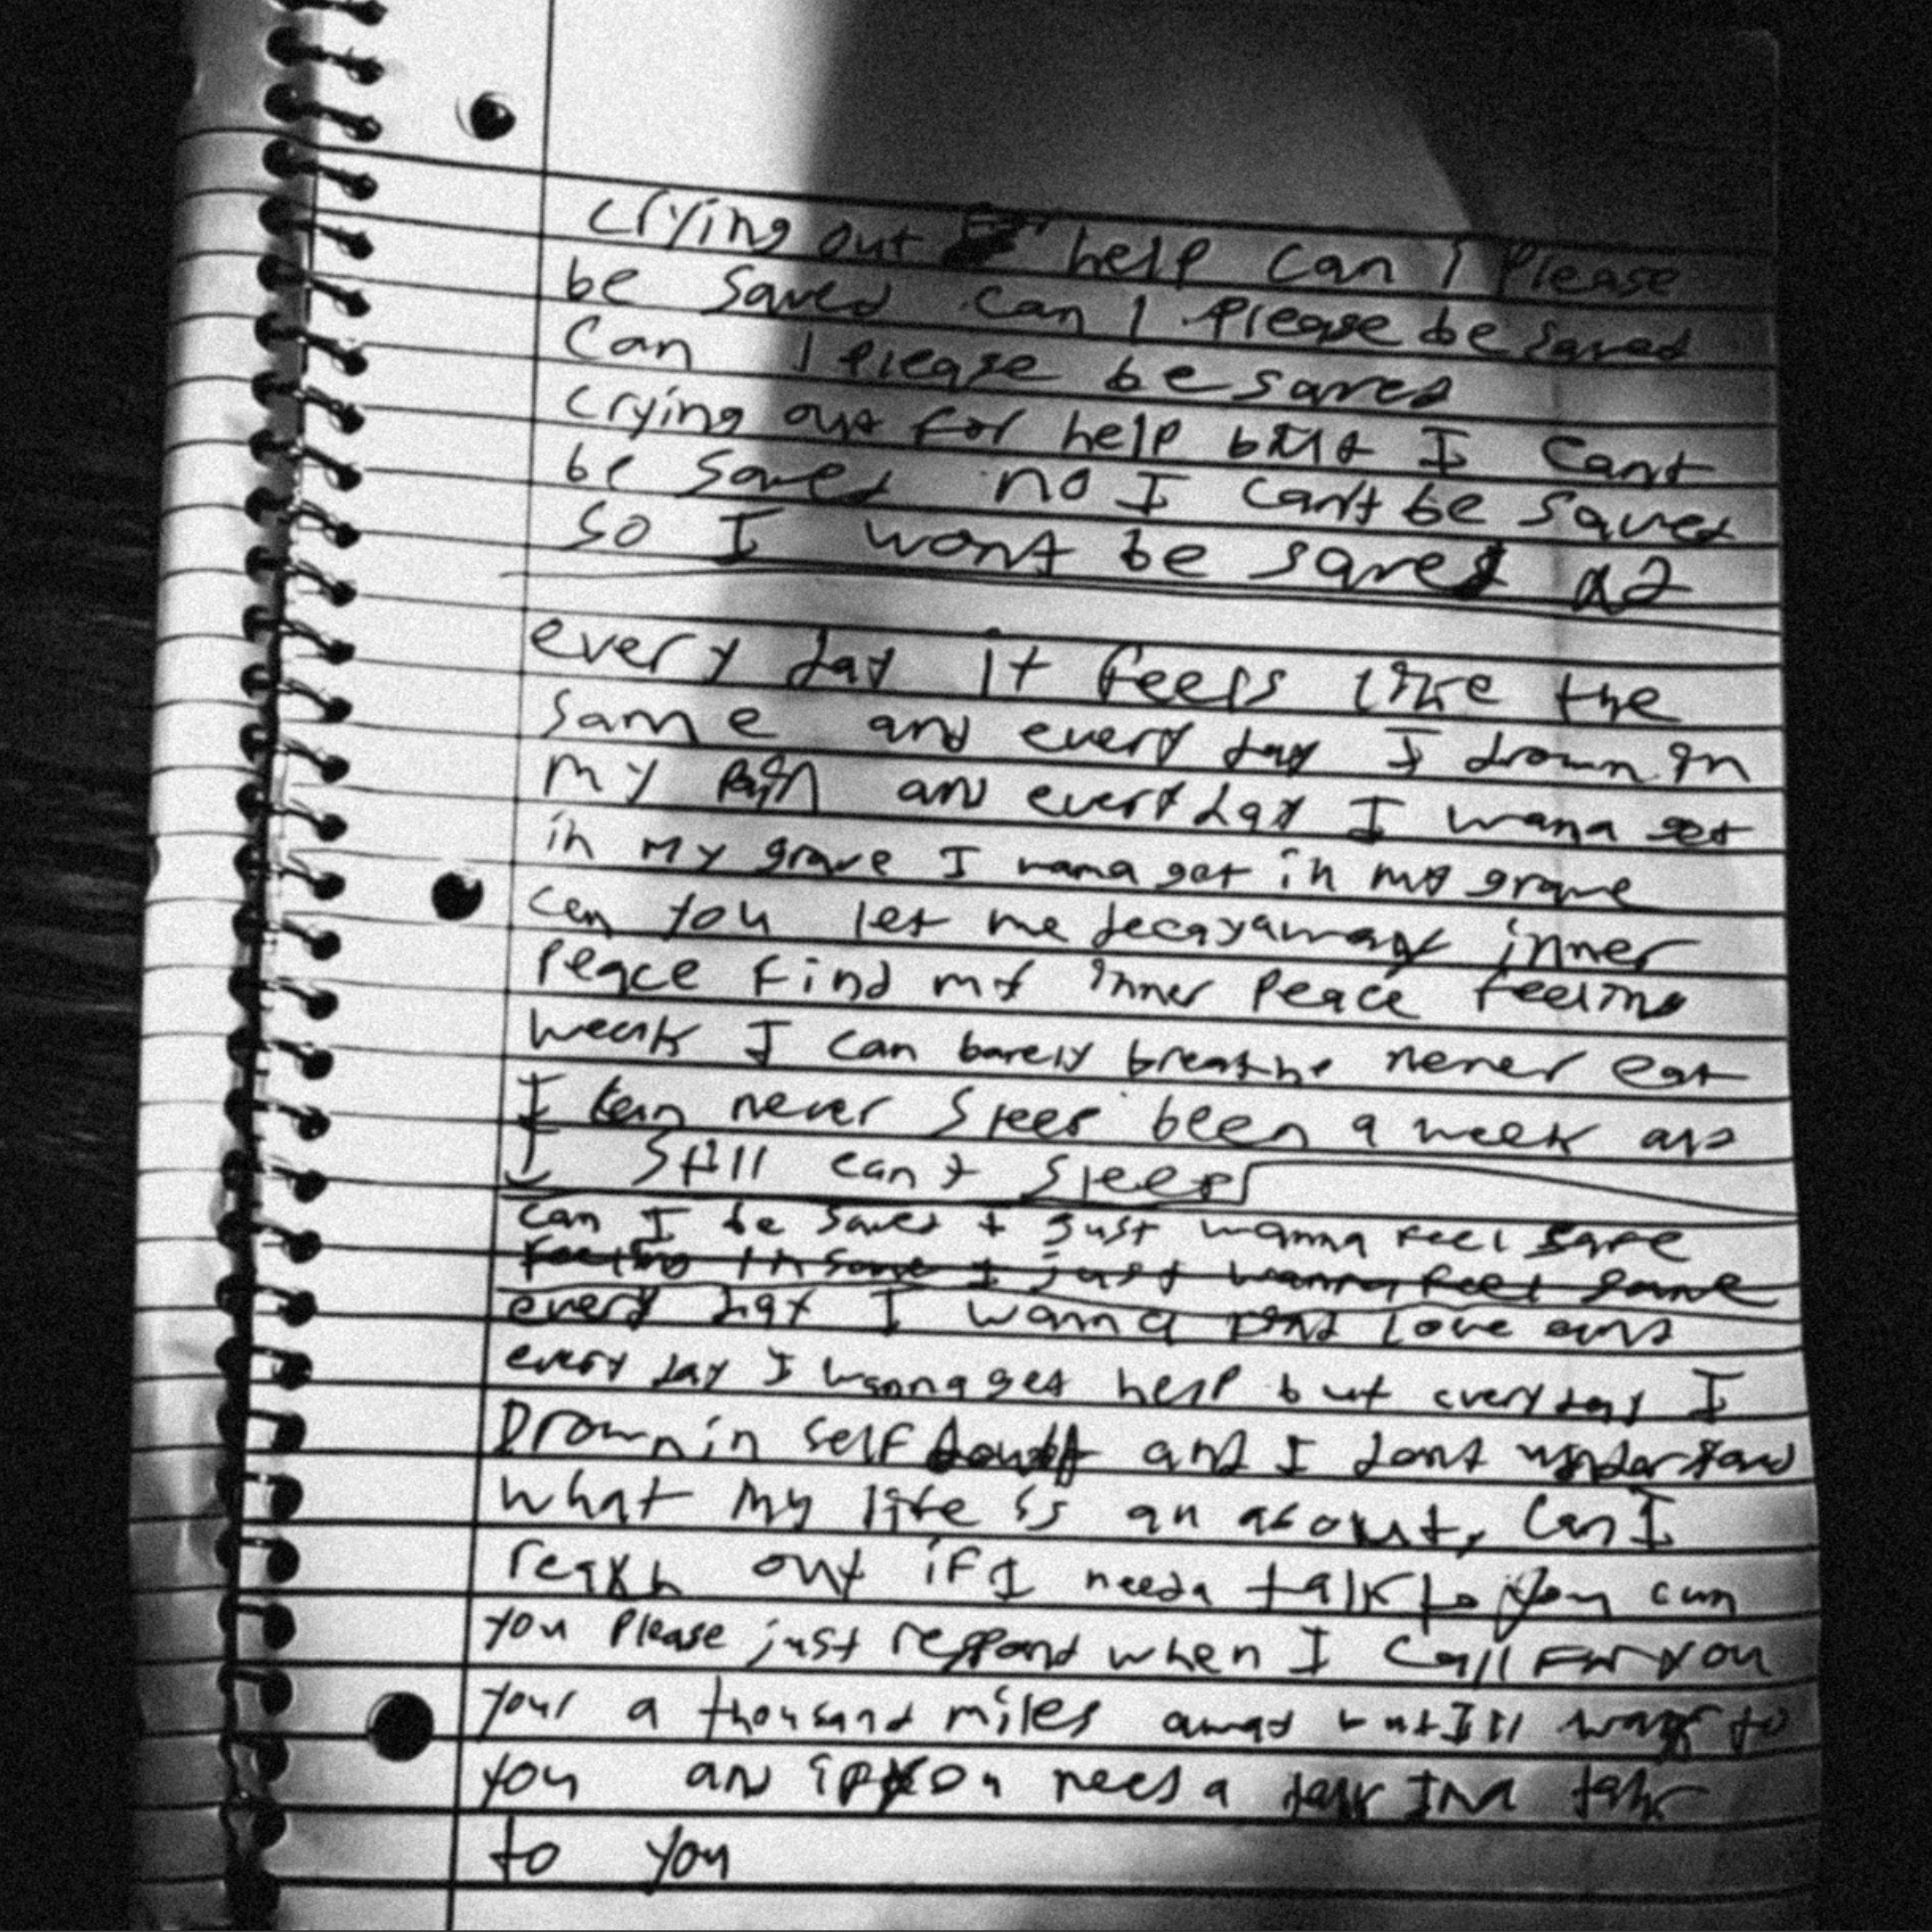 crying out help can I please
be saved can I please be saved
Can I please be saved
crying out for help but I cant
be saved no I can't be saved
so I wont be saved x2
every day it feels like the
same and every day I drown in
my pain and everyday I wana get
in my grave I wana get in my grave
can you let me decay away inner
peace find my inner peace feeling
weak I can barely breathe never eat
I can never sleep been a week and
I still can't sleep
can I be saved I just wanna feel safe
feeling insane I just wanna feel sane
every day I wanna find love and
every day I wanna get help but everyday I
Drown in self doubt and I dont understand
what my life is all about, can I
reach out if I needa talk to you can
you please just respond when I call for you
your a thousand miles away but I'll to
you and if you needa talk Ima talk
to you